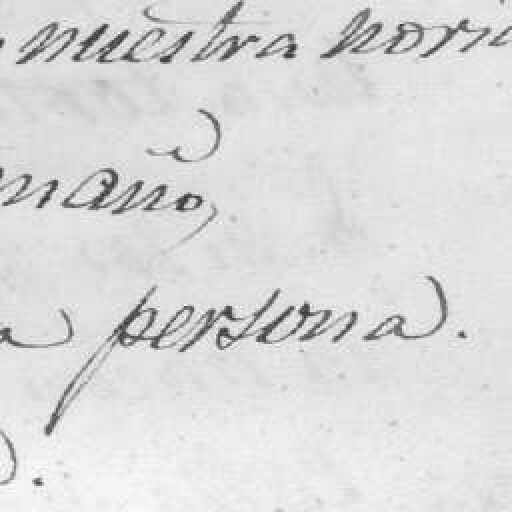 nuestra nori
maño,
a persona.